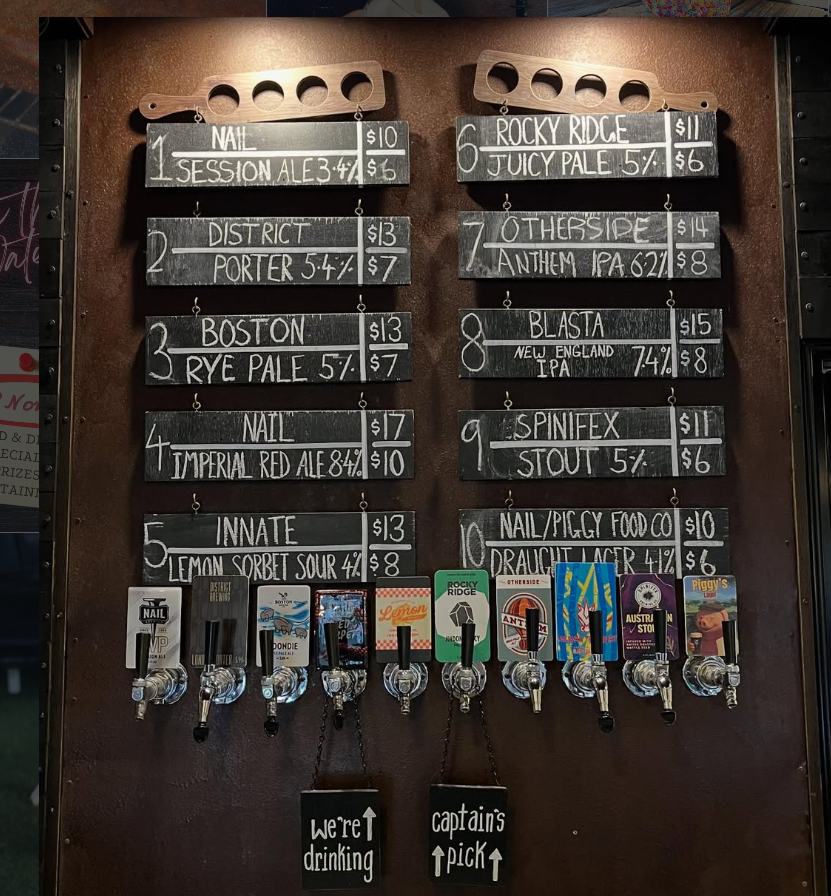 1 NAIL $10
SESSION ALE 3.4% $6
2 DISTRICT $13
PORTER 5.4% $7
3 BOSTON $13
RYE PALE 5% $7
4 NAIL $17
IMPERIAL RED ALE 8.4% $10
5 INNATE $13
LEMON SORBET SOUR 4% $8
6 ROCKY RIDGE $11
JUICY PALE 5% $6
7 OTHERSIDE $14
ANTHEM IPA 6.2% $8
8 BLASTA $15
NEW ENGLAND
IPA 7.4% $8
9 SPINIFEX $11
STOUT 5% $6
10 NAIL/PIGGY FOOD CO $10
DRAUGHT LAGER 4.1% $6
NAIL
DISTRICT
BREWING
BOSTON
Lemon
ROCKY
RIDGE
OTHERSIDE
ANTHEM
SPINIFEX
STOUT
Piggy's
we're
drinking
captain's
pick